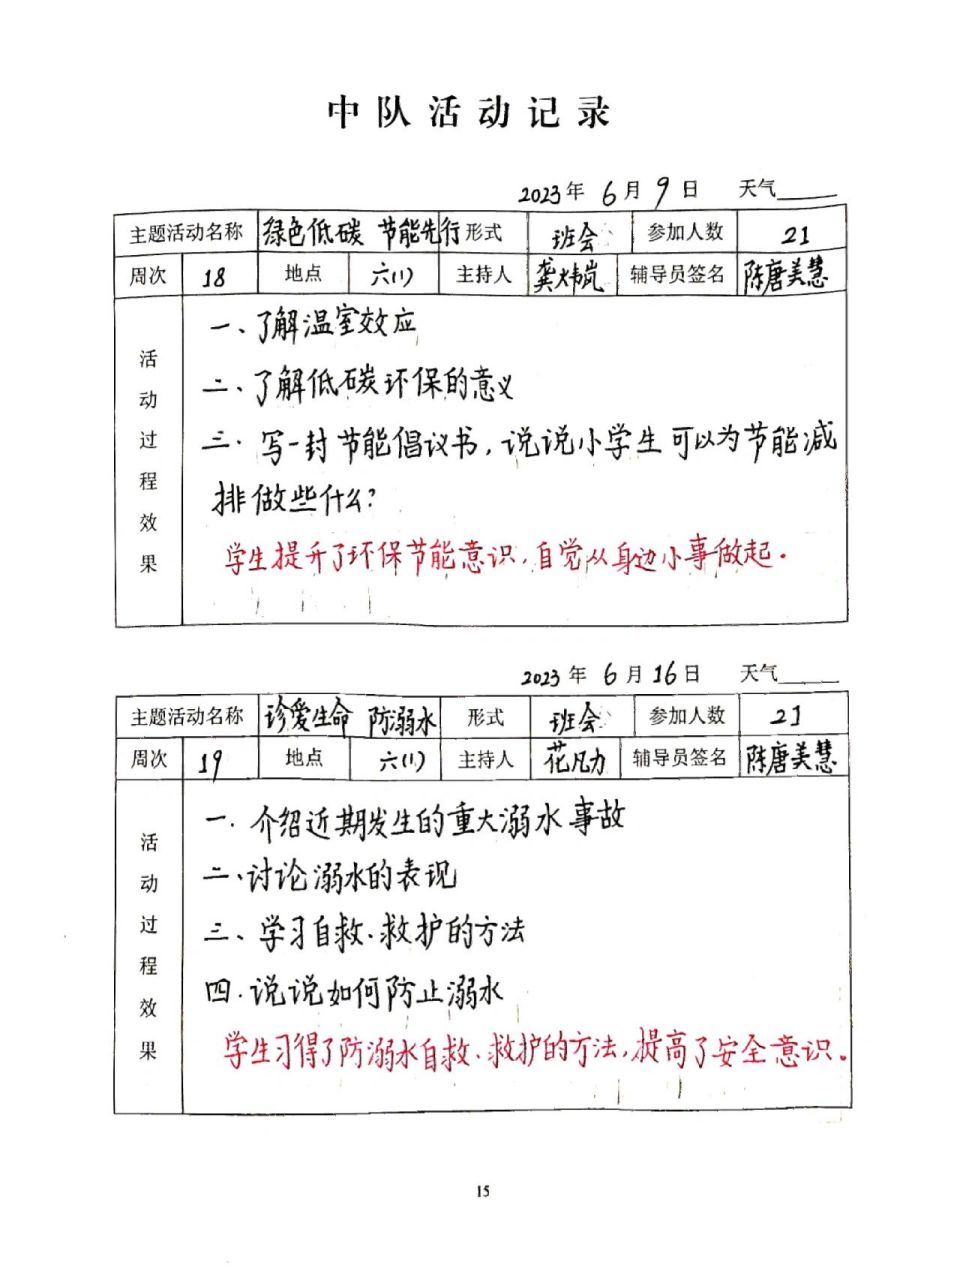 中队活动记录
2023年 6月 9日 天气
主题活动名称 绿色低碳 节能先行 形式 班会 参加人数 21
周次 18 地点 六(1) 主持人 龚炜岚 辅导员签名 陈唐美慧
活动过程效果
一、了解温室效应
二、了解低碳环保的意义
三.写一封节能倡议书,说说小学生可以为节能减
排做些什么?
学生提升了环保节能意识,自觉从身边小事做起.
2023年 6月 16日 天气
主题活动名称 珍爱生命 防溺水 形式 班会 参加人数 21
周次 19 地点 六(1) 主持人 花凡力 辅导员签名 陈唐美慧
活动过程效果
一.介绍近期发生的重大溺水事故
二、讨论溺水的表现
三、学习自救、救护的方法
四.说说如何防止溺水
学生习得了防溺水自救、救护的方法,提高了安全意识.
15